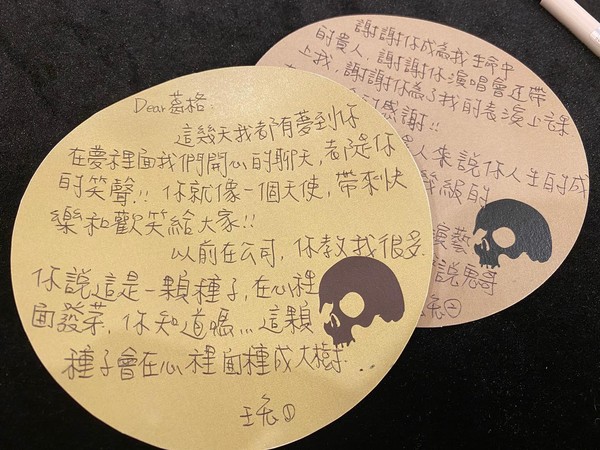 Dear葛格:
這幾天我都有夢到你
在夢裡面我們開心的聊天,都是你
的笑聲!! 你就像一個天使,帶來快
樂和歡笑給大家!!
以前在公司,你教我很多
你說這是一顆種子,在心裡
面發芽,你知道嗎...這顆
種子會在心裡面種成大樹...
王兔①
謝謝你成為我生命中
的貴人,謝謝你演唱會還帶
上我,謝謝你為了我的表演上課
感謝!!
人來說你人生的成
等級的
演藝
說恩哥
兔②